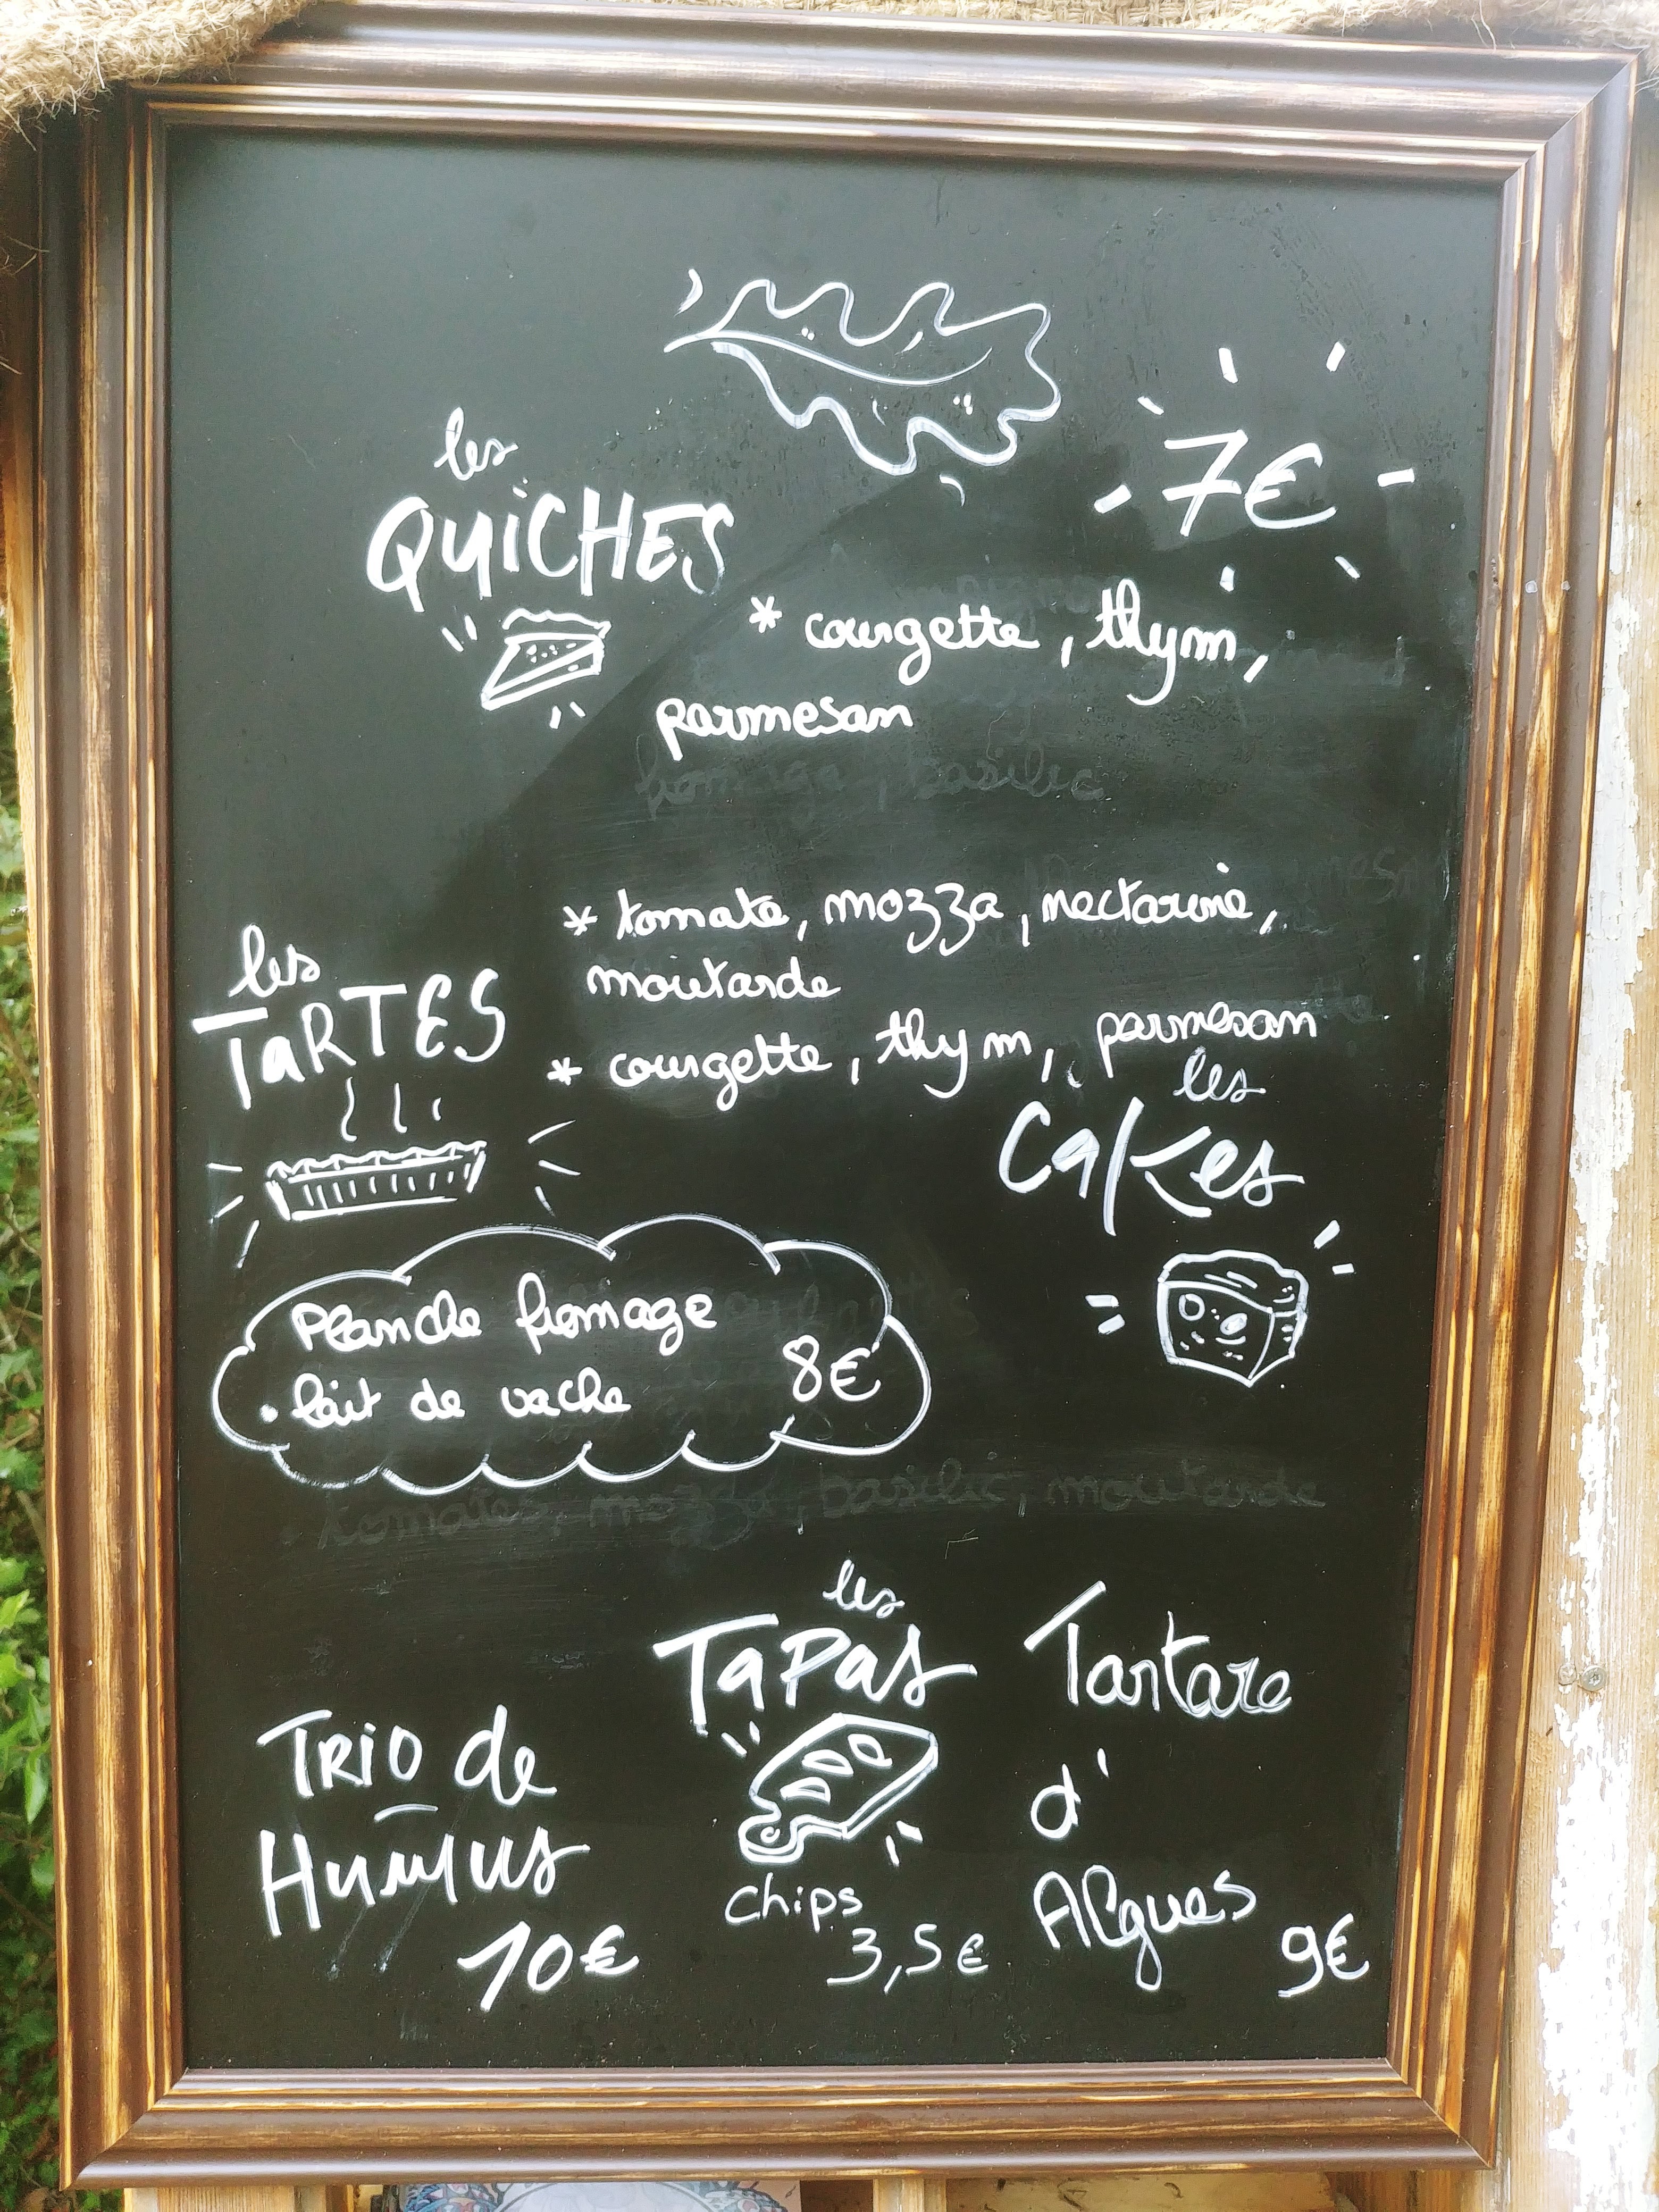 les
QUiCHES
7€
* courgette, thym,
parmesan
fromage, basilic
les
TaRTES
* tomate, mozza, nectarine,
moutarde
* courgette, thym, parmesan
les
Cakes
Planche fromage
• lait de vache 8€
tomates, mozza, basilic, moutarde
les
TaPas
TRiO de
HuMus
10€
Chips
3,5€
Tartare
d'
Algues
9€